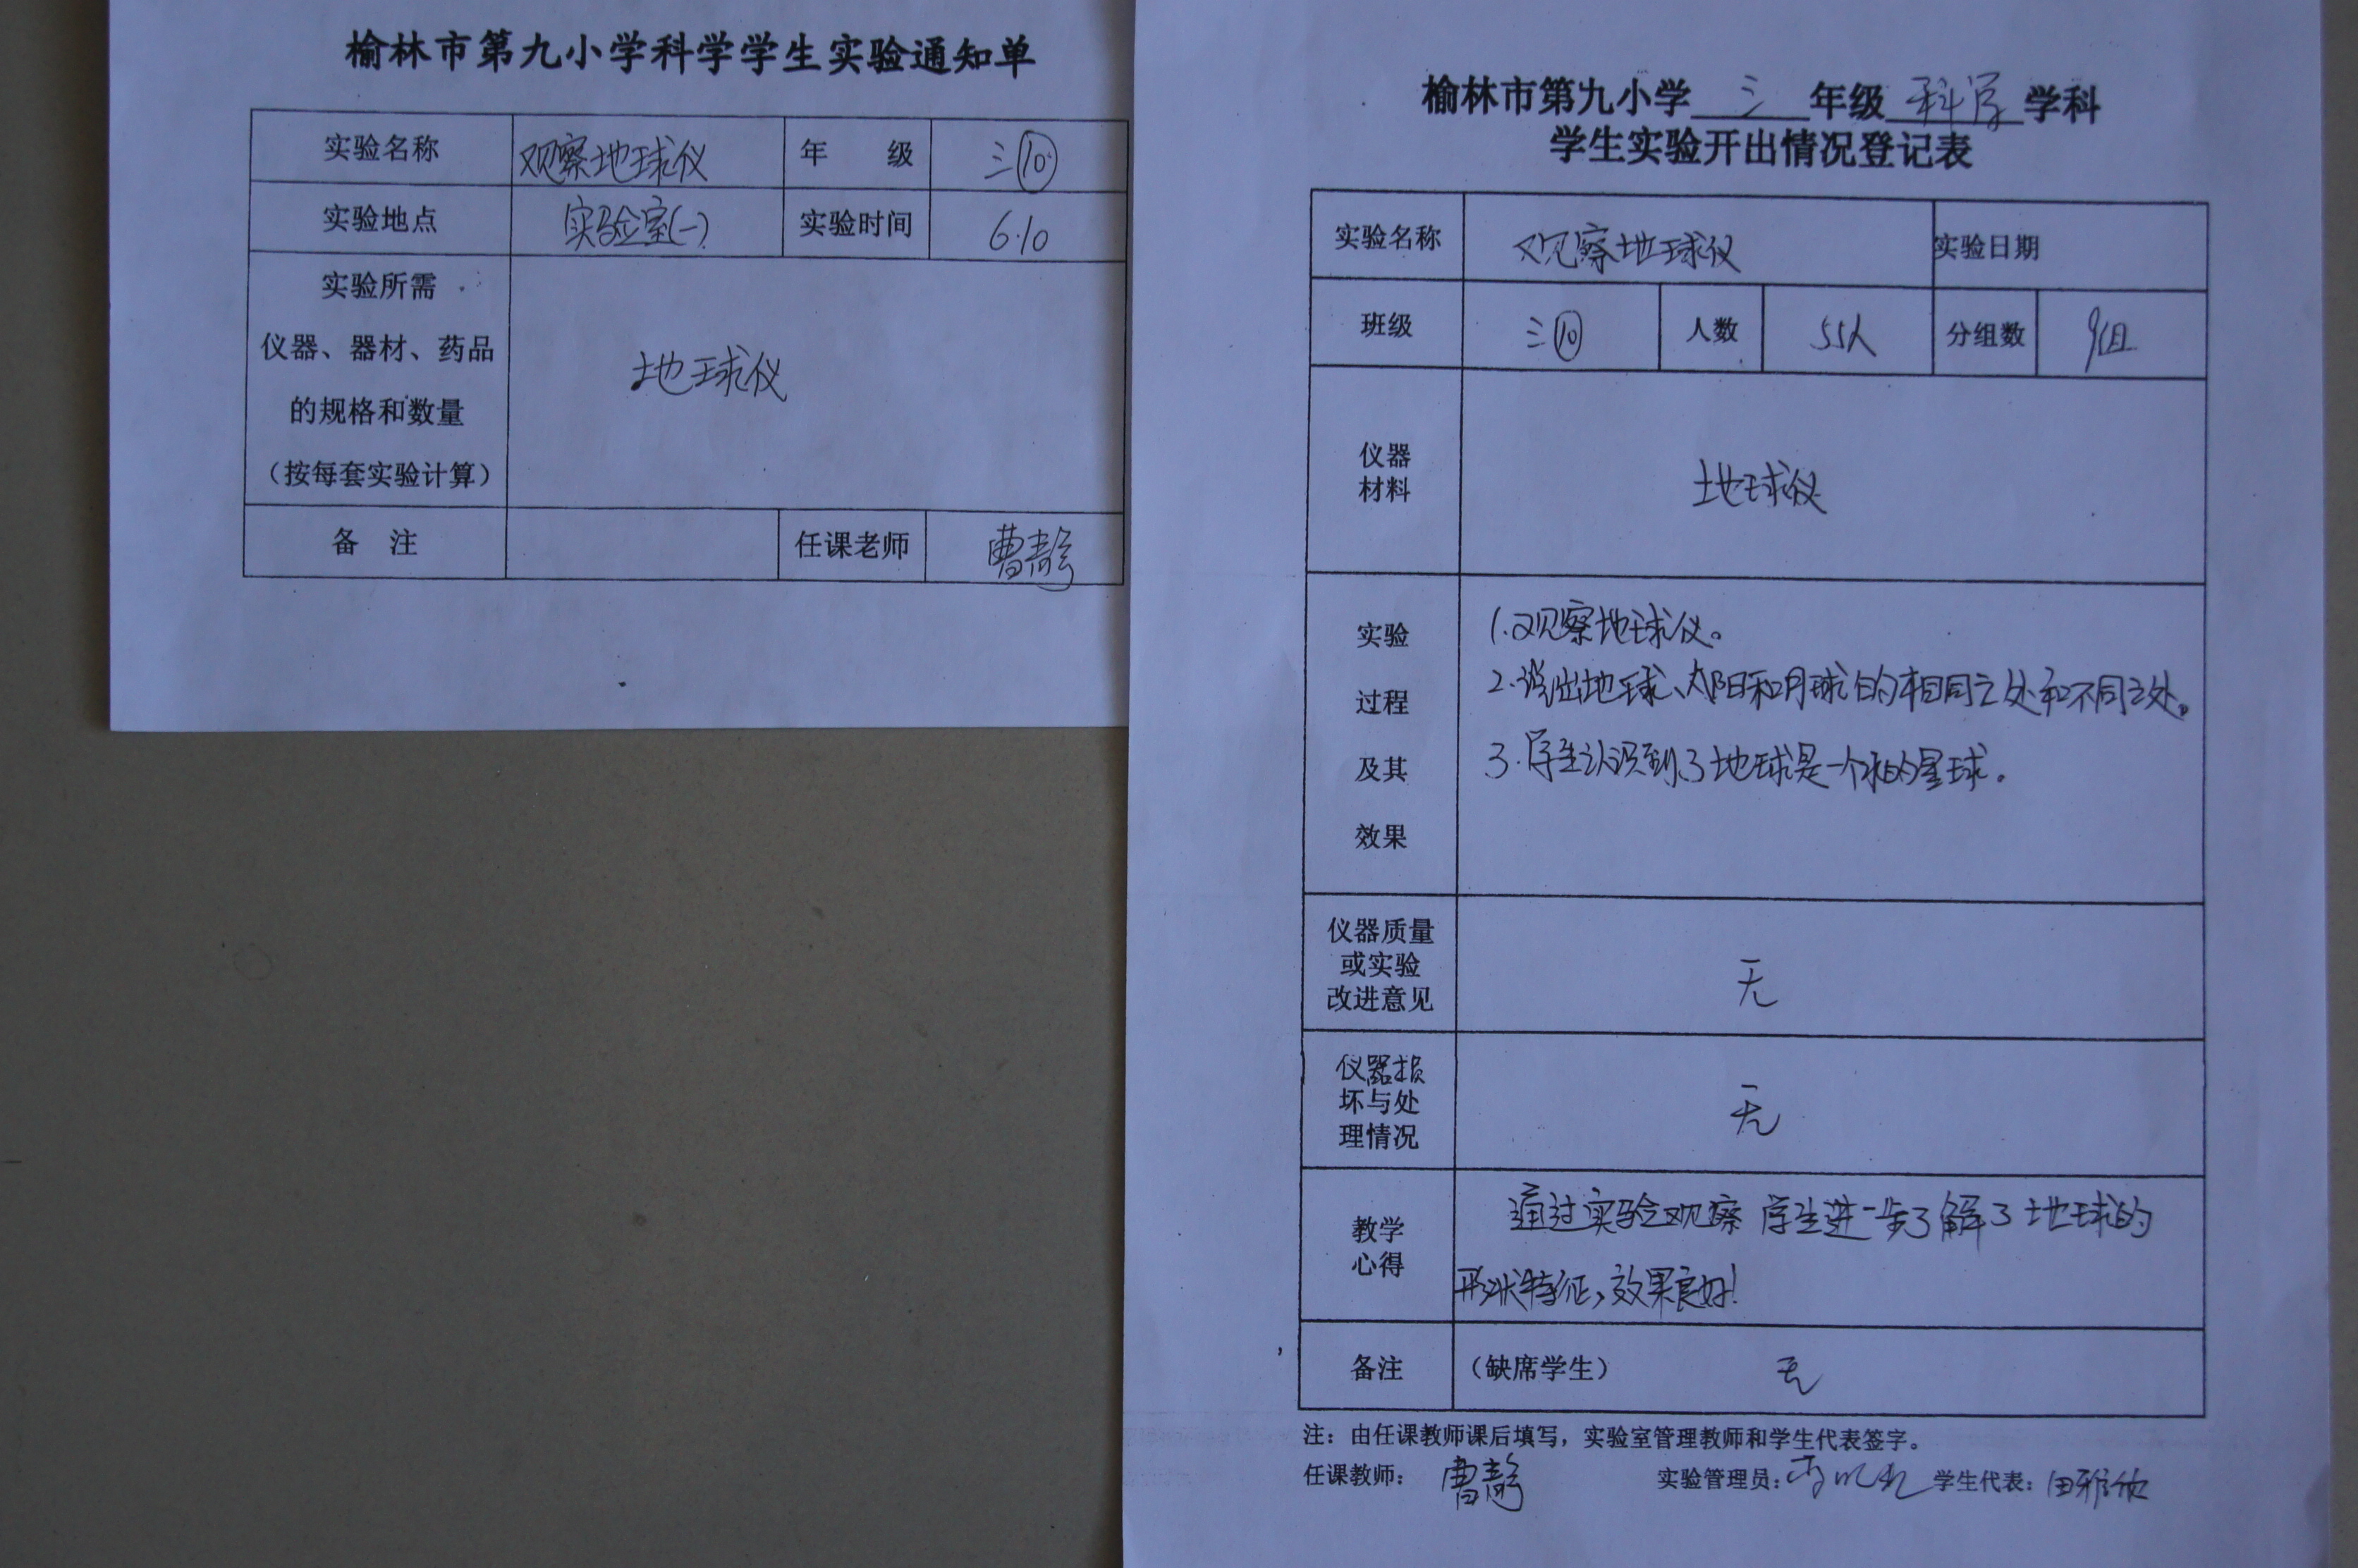 榆林市第九小学科学学生实验通知单
实验名称 观察地球仪 年 级 三⑩
实验地点 实验室(一) 实验时间 6.10
实验所需
仪器、器材、药品
的规格和数量
（按每套实验计算）
地球仪
备 注 任课老师 曹静
榆林市第九小学 三 年级 科学 学科
学生实验开出情况登记表
实验名称 观察地球仪 实验日期
班级 三⑩ 人数 55人 分组数 9组
仪器
材料
地球仪
实验
过程
及其
效果
1.观察地球仪。
2.说出地球、太阳和月球的相同之处和不同之处。
3.学生认识到了地球是一个水的星球。
仪器质量
或实验
改进意见
无
仪器损
坏与处
理情况
无
教学
心得
通过实验观察 学生进一步了解了地球的
形状特征,效果良好!
备注 （缺席学生） 无
注：由任课教师课后填写，实验室管理教师和学生代表签字。
任课教师： 曹静 实验管理员: 学生代表: 田雅欣